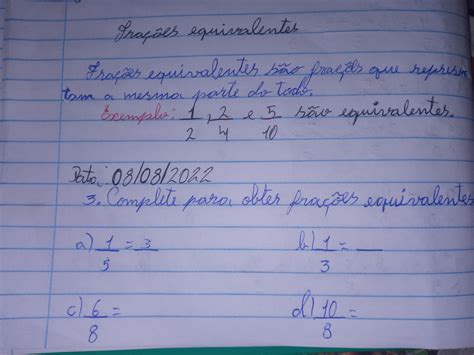 Frações equivalentes
Frações equivalentes são frações que represen
tam a mesma parte do todo.
Exemplo: 1/2, 2/4 e 5/10 são equivalentes.
Data: 08/08/2022
3. Complete para obter frações equivalentes
a) 1/5 = 3/ b) 1/3 = __
c) 6/8 = d) 10/8 =